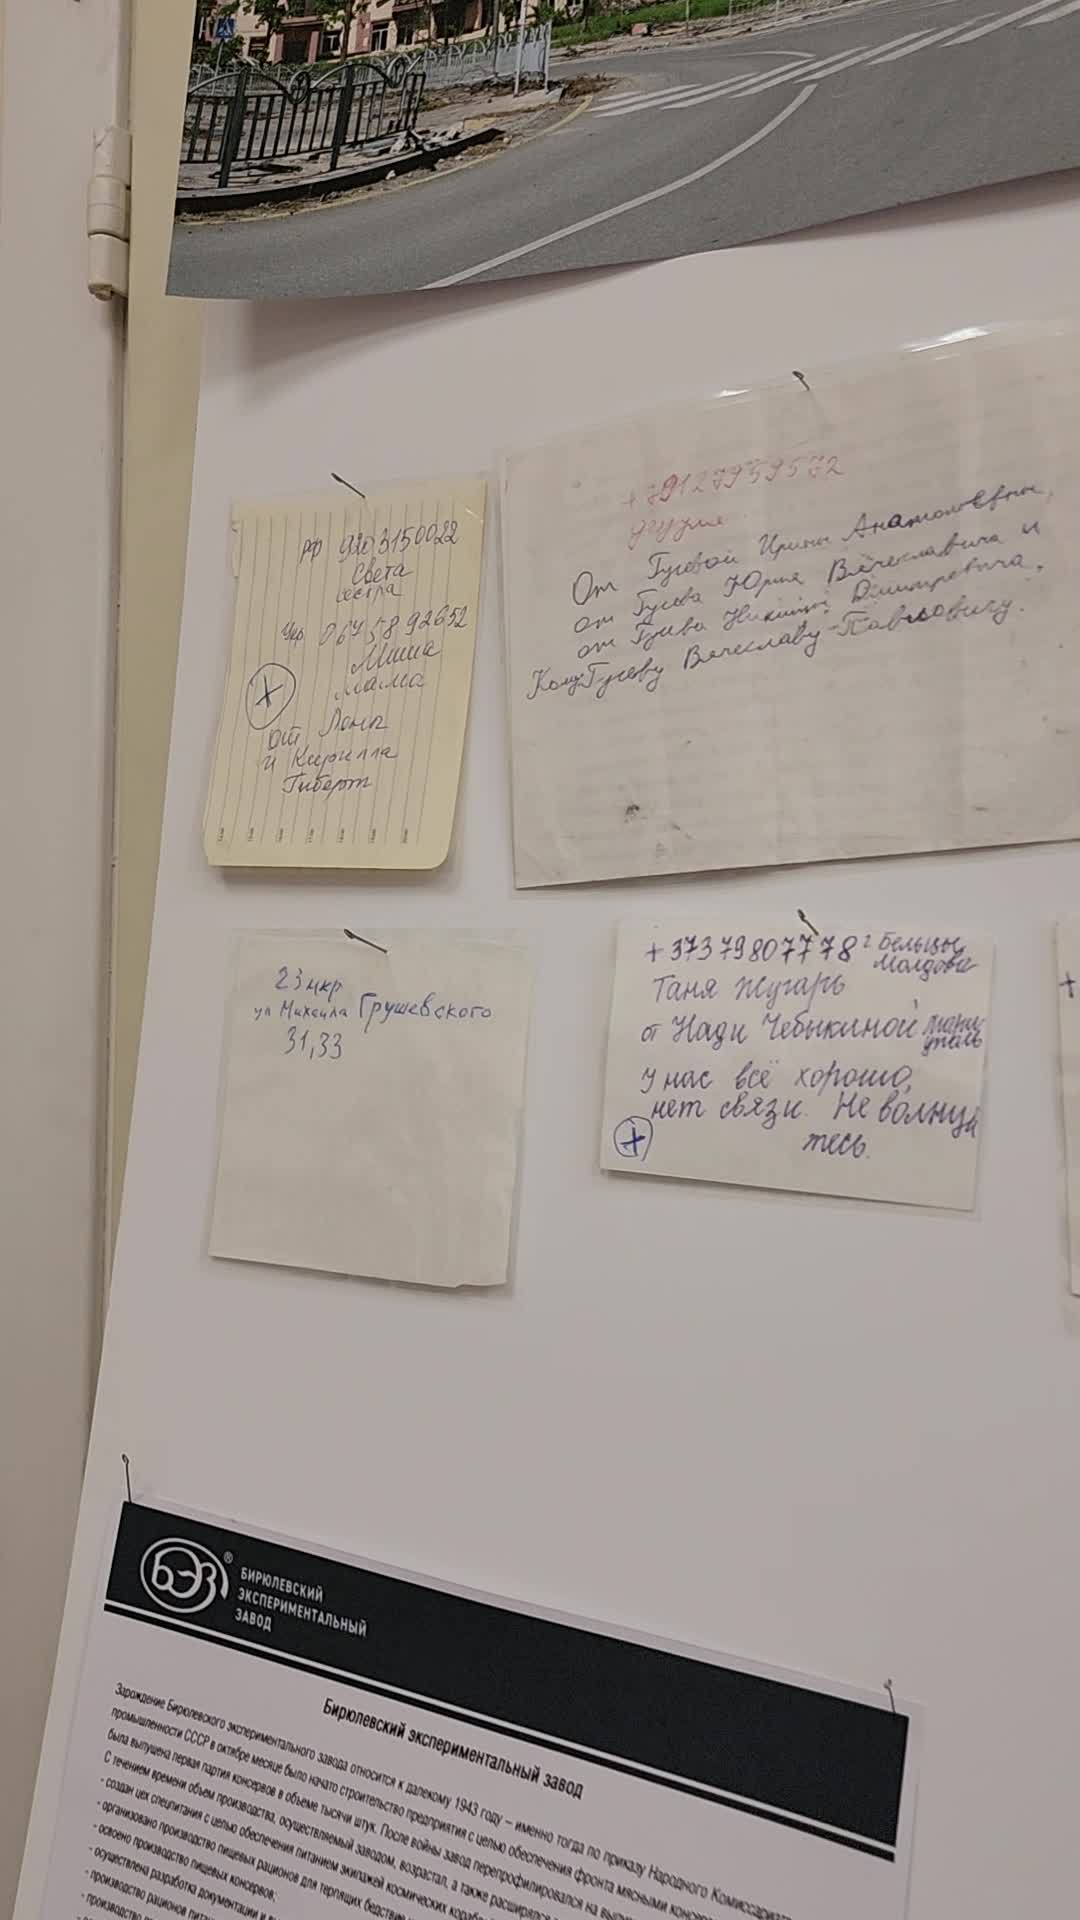 рф 9203150022
Света
сестра
Укр. 0675892652
Миша
мама
от Лены
и Кирилла
Гиберт
+79127959572
От Гусевой Ирины Анатольевны,
от Гусева Юрия Вячеславича и
от Гусева Никиты Дмитревича.
Кому Гусеву Вячеславу Павловичу.
23 мкр
ул Михаила Грушевского
31,33
+37379807778 г Бельцы
Молдова
Таня Жугарь
от Нади Чебыкиной Мари
уполь
У нас всё хорошо,
нет связи. Не волнуй
тесь.
+
БЭЗ®
БИРЮЛЕВСКИЙ
ЭКСПЕРИМЕНТАЛЬНЫЙ
ЗАВОД
Бирюлевский экспериментальный завод
Зарождение Бирюлевского экспериментального завода относится к далекому 1943 году – именно тогда по приказу Народного Комиссариата
промышленности СССР в октябре месяце было начато строительство предприятия с целью обеспечения фронта мясными
была выпущена первая партия консервов в объеме тысячи штук. После войны завод перепрофилировался на
С течением времени объем производства, осуществляемый заводом, возрастал, а также расширялся
- создан цех спецпитания с целью обеспечения питанием экипажей космических
- организовано производство пищевых рационов для терпящих бедствие
- освоено производство пищевых консервов;
- осуществлена разработка документации и
- производство рационов
- производство